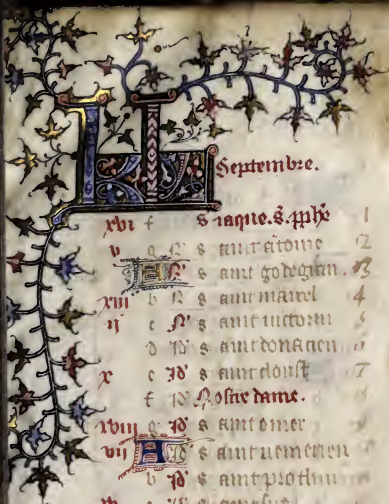 KL Septembre.
xvi f S iaque. 1
v g N' s aint antoine 2
A N' s aint godegran. 3
xiii b N' s aint marcel 4
ii c N' s aint victorin 5
d Id' s aint donacien 6
x e Id' s aint cloust 7
f Id' Nostre dame. 8
xviii g Id' s aint omer 9
vii A Id' s aint
b Id' s aint prothin